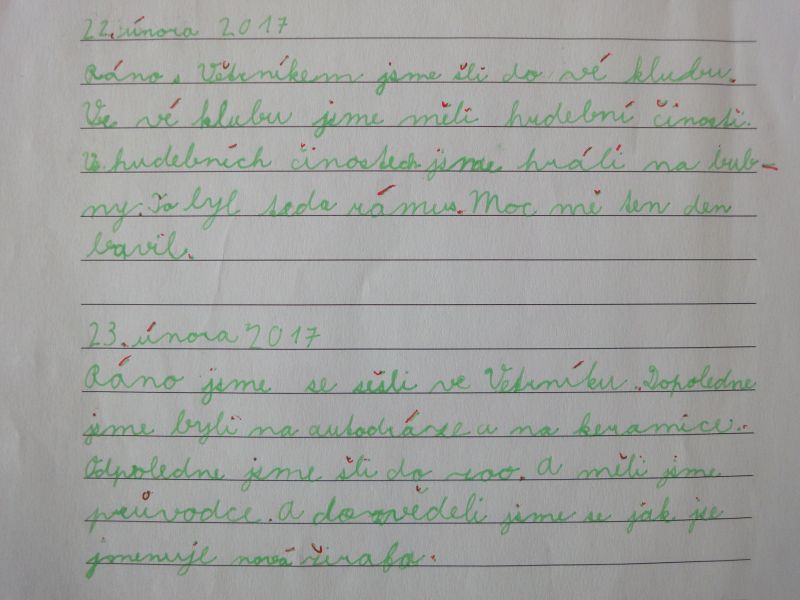 22. února 2017
Ráno s Větrníkem jsme šli do vé klubu.
Ve vé klubu jsme měli hudební činosti.
V hudebních činostech jsme hráli na bub-
ny. To byl teda rámus. Moc mě ten den
bavil.
23. února 2017
Ráno jsme se sešli ve Větrníku. Dopoledne
jsme byli na autodráze a na keramice.
Odpoledne jsme šli do zoo. A měli jsme
průvodce. A dozvěděli jsme se jak se
jmenuje nová žirafa.